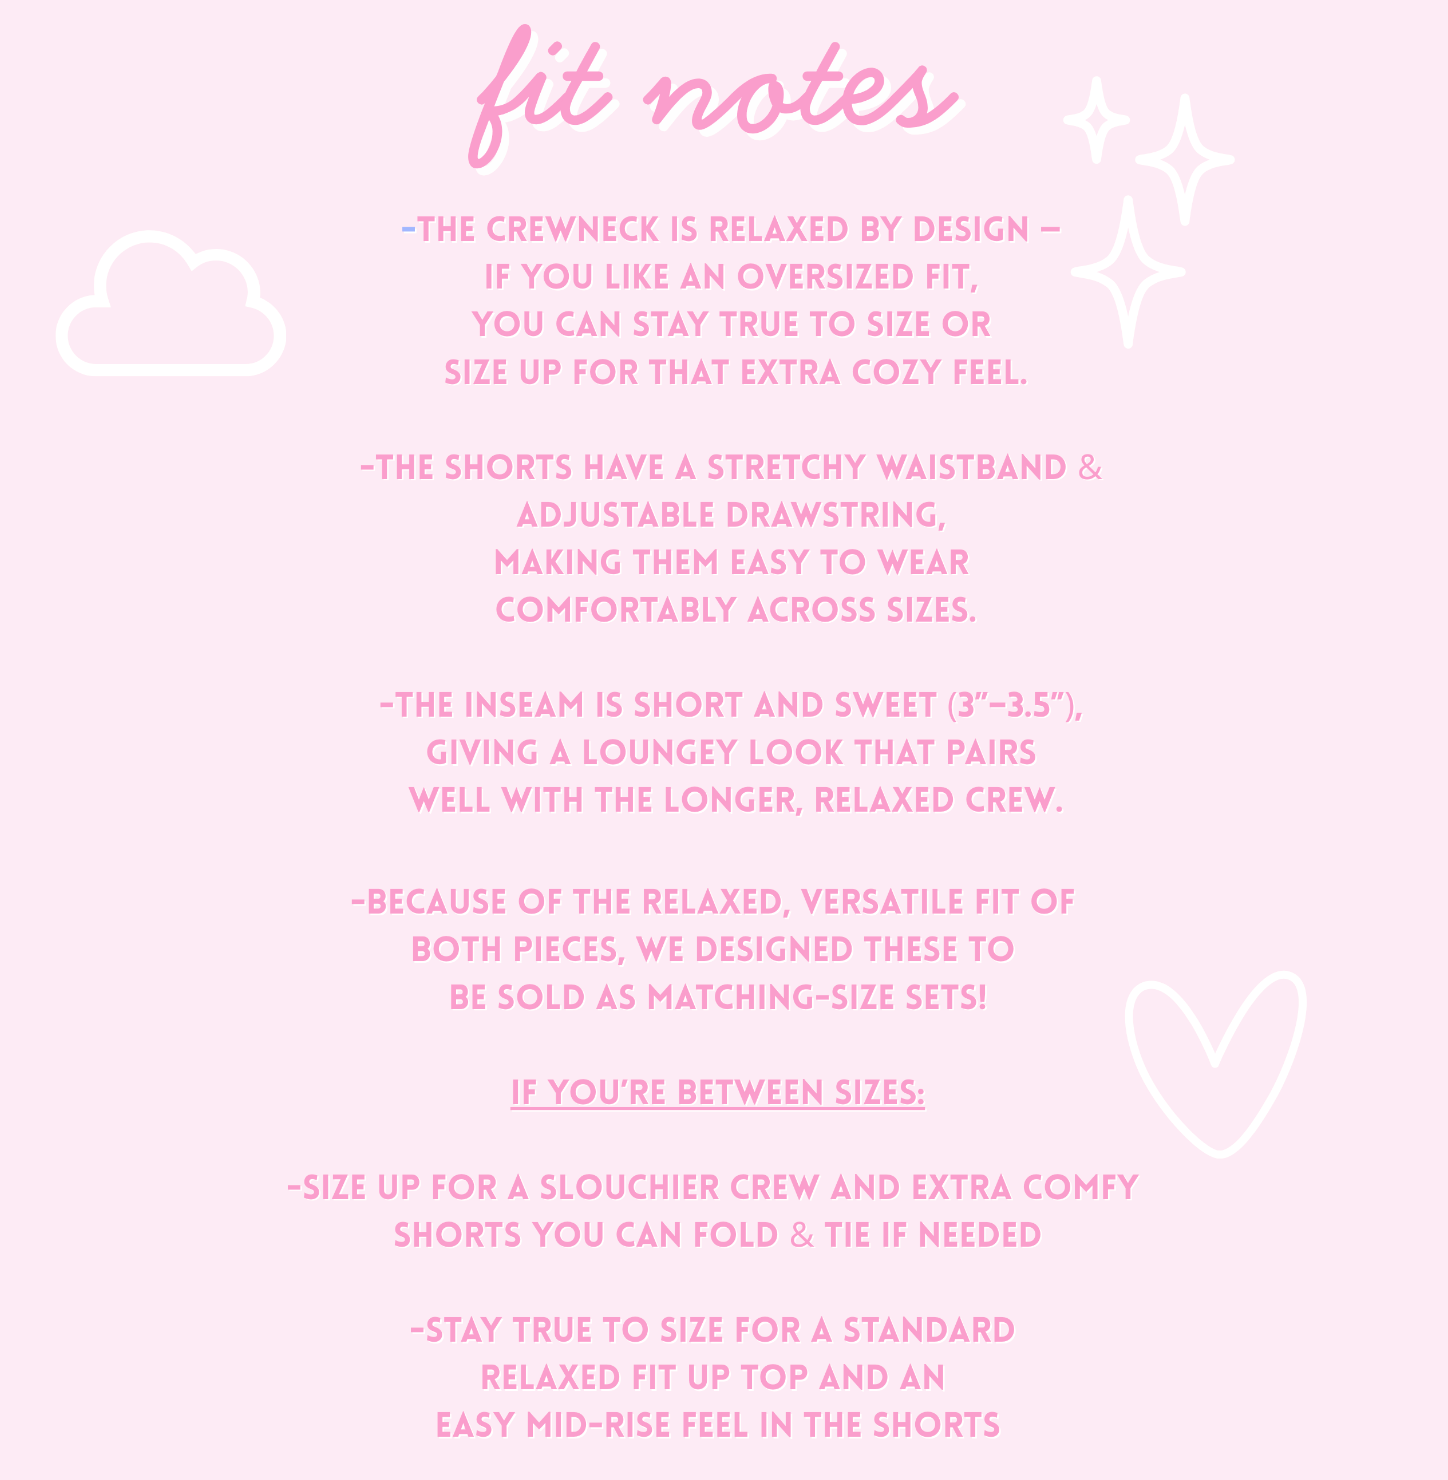 fit notes
-THE CREWNECK IS RELAXED BY DESIGN –
IF YOU LIKE AN OVERSIZED FIT,
YOU CAN STAY TRUE TO SIZE OR
SIZE UP FOR THAT EXTRA COZY FEEL.
-THE SHORTS HAVE A STRETCHY WAISTBAND &
ADJUSTABLE DRAWSTRING,
MAKING THEM EASY TO WEAR
COMFORTABLY ACROSS SIZES.
-THE INSEAM IS SHORT AND SWEET (3”–3.5”),
GIVING A LOUNGEY LOOK THAT PAIRS
WELL WITH THE LONGER, RELAXED CREW.
-BECAUSE OF THE RELAXED, VERSATILE FIT OF
BOTH PIECES, WE DESIGNED THESE TO
BE SOLD AS MATCHING-SIZE SETS!
IF YOU’RE BETWEEN SIZES:
-SIZE UP FOR A SLOUCHIER CREW AND EXTRA COMFY
SHORTS YOU CAN FOLD & TIE IF NEEDED
-STAY TRUE TO SIZE FOR A STANDARD
RELAXED FIT UP TOP AND AN
EASY MID-RISE FEEL IN THE SHORTS